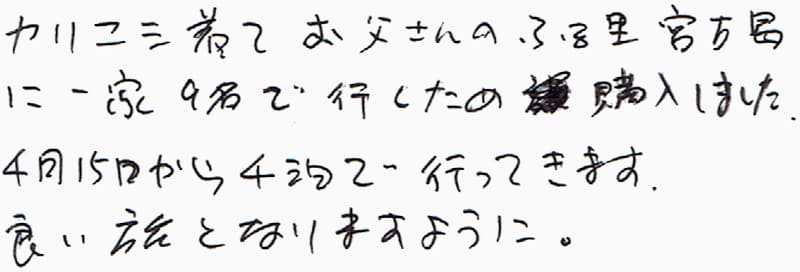 カリユシ着て お父さんのふる里 宮古島
に一家9名で 行くため 購入しました.
4月15日から4泊で 行ってきます.
良い旅となりますように。